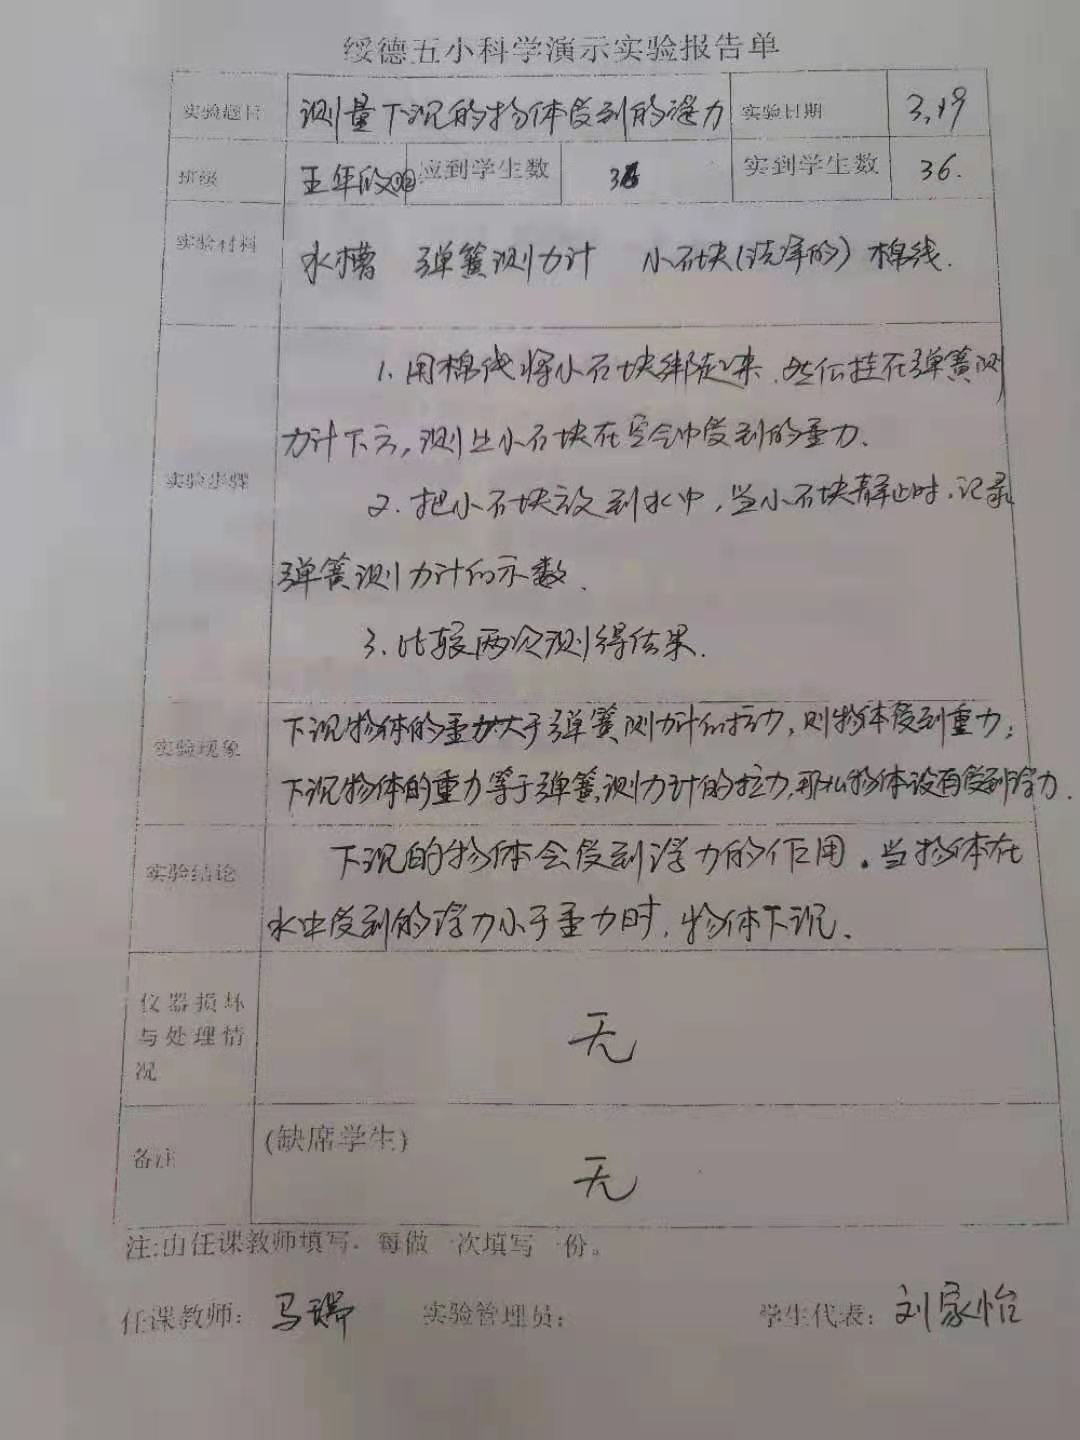 绥德五小科学演示实验报告单
实验题目 测量下沉的物体受到的浮力 实验日期 3,19
班级 五年级 应到学生数 36 实到学生数 36.
实验材料 水槽 弹簧测力计 小石块(洗净的) 棉线.
1. 用棉线将小石块绑起来. 然后挂在弹簧测
力计下方, 测出小石块在空气中受到的重力.
实验步骤
2. 把小石块放到水中, 当小石块静止时, 记录
弹簧测力计的示数.
3. 比较两次测得结果.
下沉物体的重力大于弹簧测力计的拉力, 则物体受到重力;
实验现象
下沉物体的重力等于弹簧测力计的拉力, 那么物体没有受到浮力.
下沉的物体会受到浮力的作用. 当物体在
实验结论
水中受到的浮力小于重力时, 物体下沉.
仪器损坏
与处理情
况
无
(缺席学生)
备注
无
注:由任课教师填写. 每做一次填写一份。
任课教师: 马瑞 实验管理员: 学生代表: 刘家怡